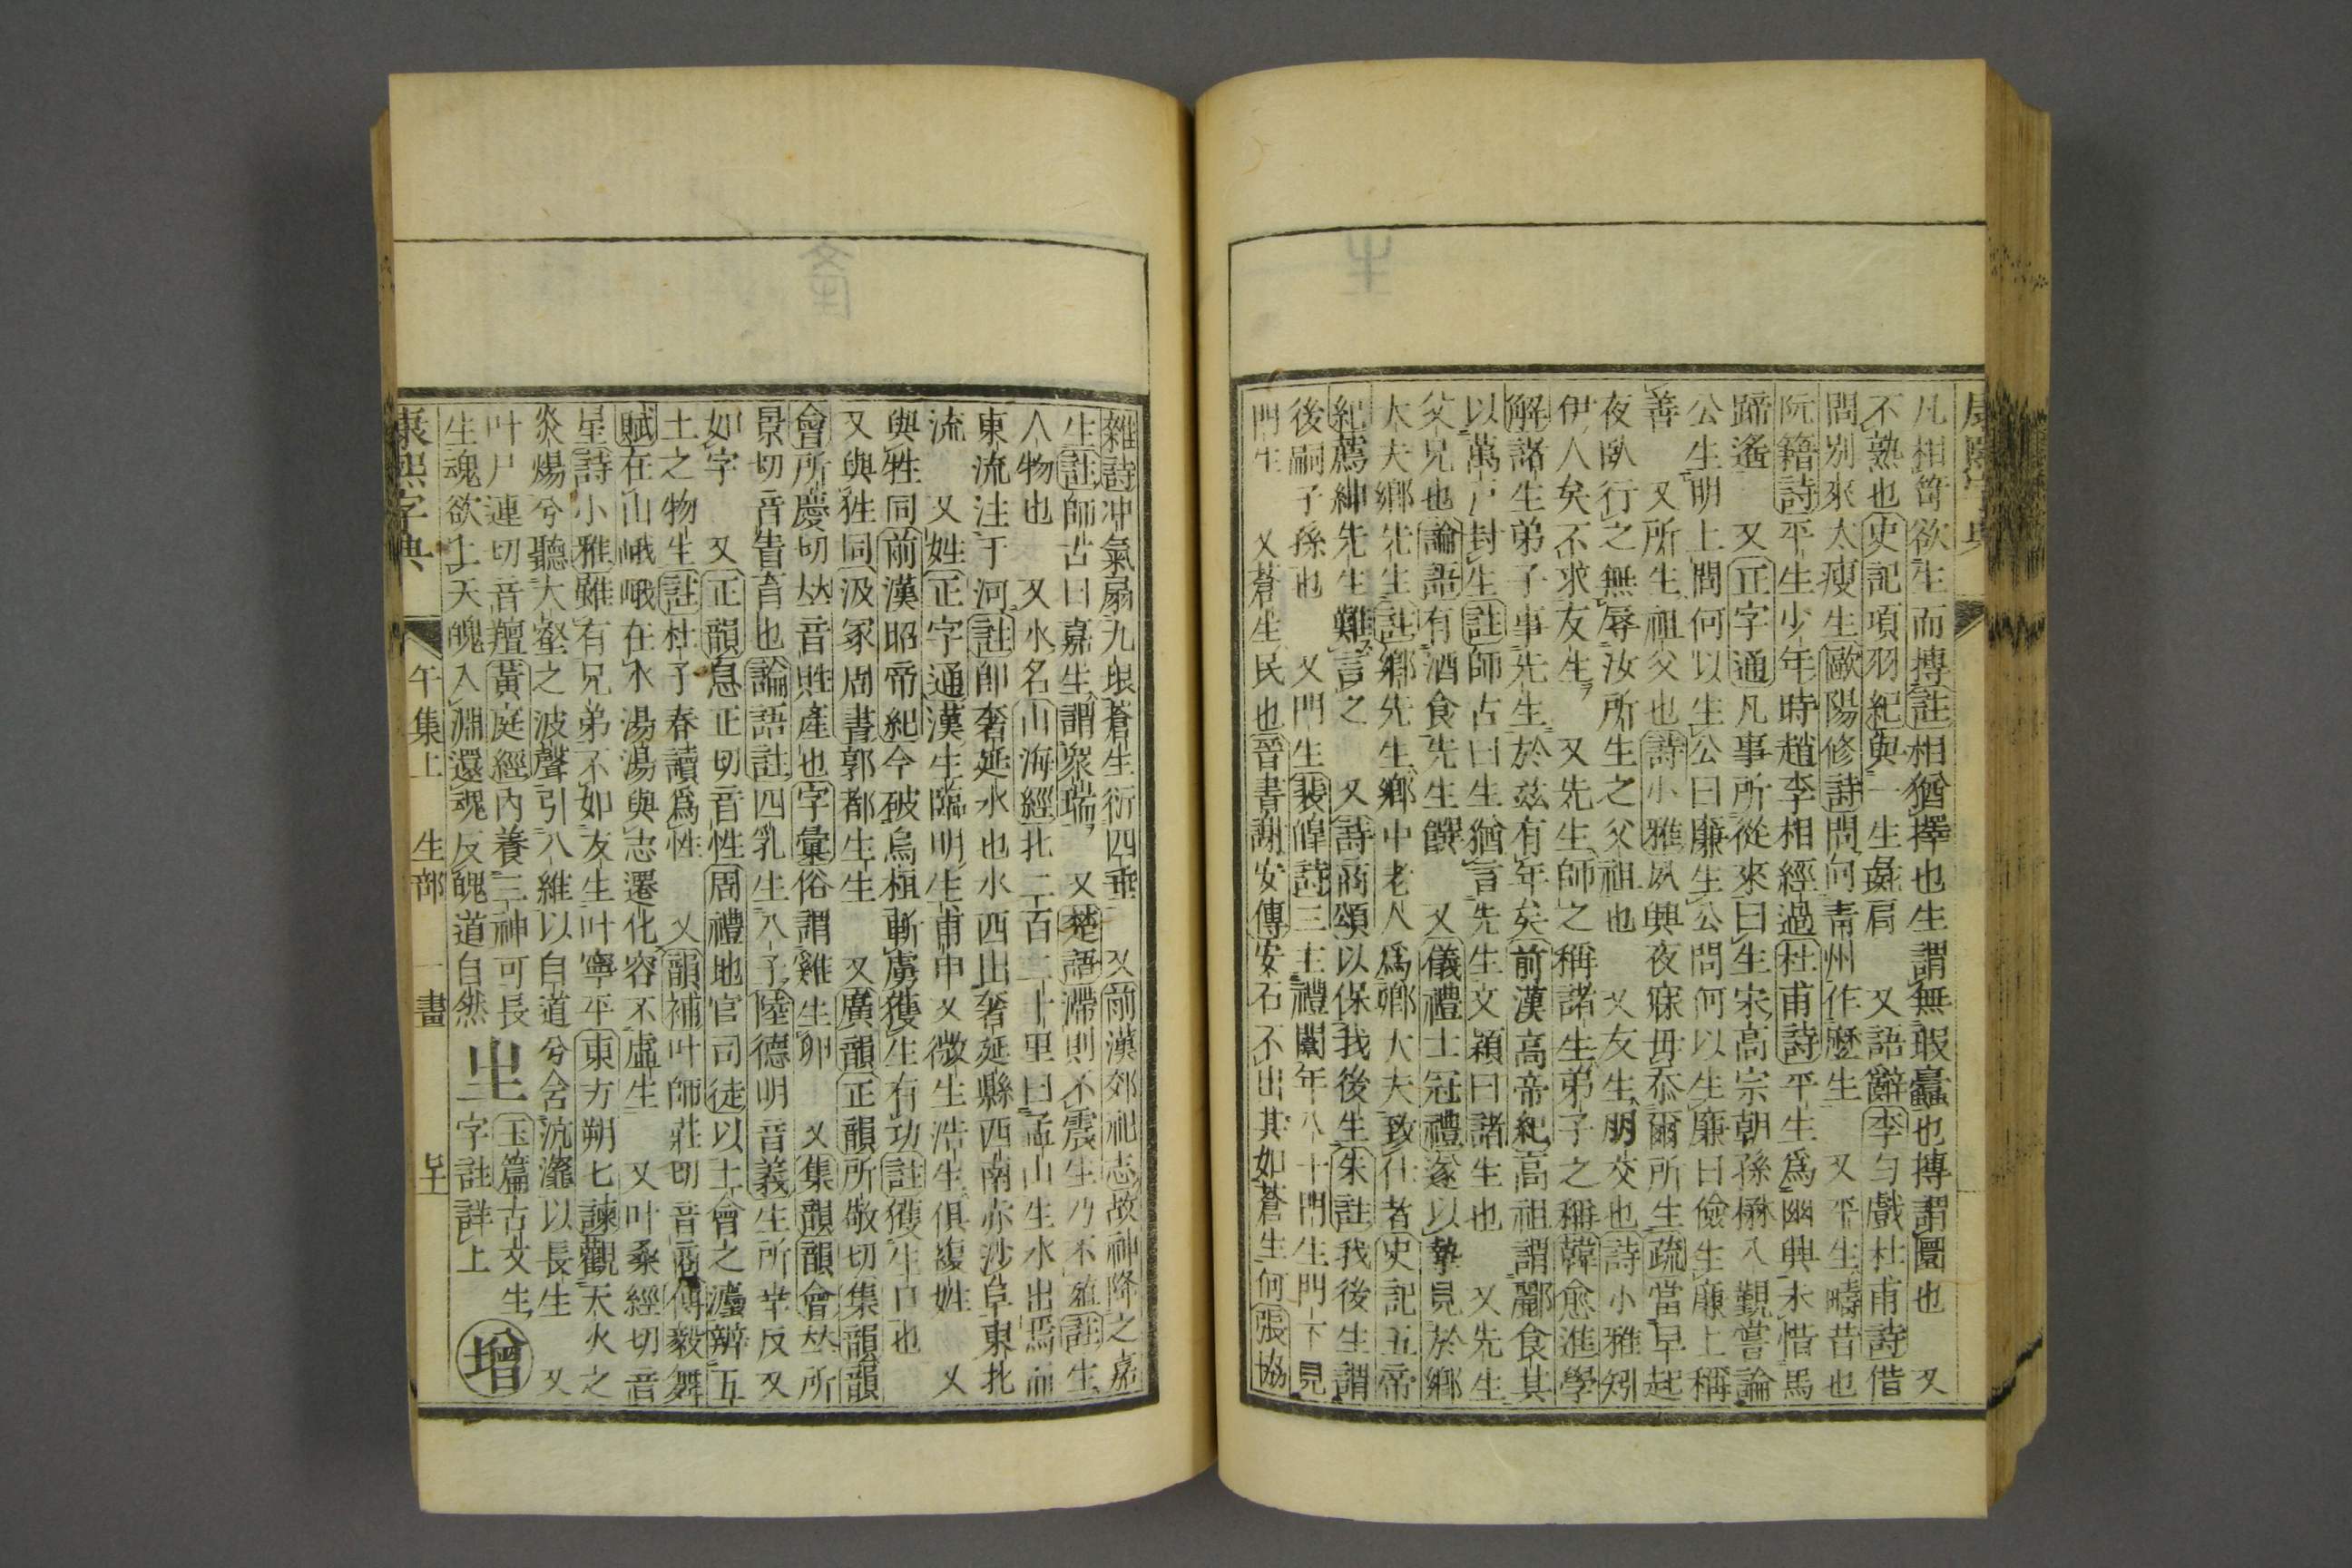 凡相笴欲生而摶註相猶擇也生謂無瑕蠹也摶謂圜也　又
不熟也史記項羽紀與一生彘肩　又語辭李白戲杜甫詩借
問別來太瘦生歐陽修詩問向青州作麼生　又平生疇昔也
阮籍詩平生少年時趙李相經過杜甫詩平生爲幽興未惜馬
蹄遙　又正字通凡事所從來曰生宋高宗朝孫楙入覲嘗論
公生明上問何以生公曰廉生公問何以生廉曰儉生廉上稱
善　又所生祖父也詩小雅夙興夜寐毋忝爾所生疏當早起
夜臥行之無辱汝所生之父祖也　又友生朋交也詩小雅矧
伊人矣不求友生　又先生師之稱諸生弟子之稱韓愈進學
解諸生弟子事先生於茲有年矣前漢高帝紀高祖謂酈食其
以萬戸封生註師古曰生猶言先生文穎曰諸生也　又先生
父兄也論語有酒食先生饌　又儀禮士冠禮遂以摯見於鄉
大夫鄉先生註鄉先生鄉中老人爲鄉大夫致仕者史記五帝
紀薦紳先生難言之　又詩商頌以保我後生朱註我後生謂
後嗣子孫也　又門生裴皡詩三主禮闈年八十門生門下見
門生　又蒼生民也晉書謝安傳安石不出其如蒼生何張協
雜詩沖氣扇九垠蒼生衍四垂　又前漢郊祀志故神降之嘉
生註師古曰嘉生謂衆瑞　又楚語滯則不震生乃不殖註生
人物也　又水名山海經北二百二十里曰孟山生水出焉而
東流注于河註卽奢延水也水西出奢延縣西南赤沙阜東北
流　又姓正字通漢生臨明生甫申又微生浩生俱複姓　又
與牲同前漢昭帝紀今破烏桓斬虜獲生有功註獲生口也
又與狌同汲冢周書郭都生生　又廣韻正韻所敬切集韻韻
會所慶切𠀤音貹產也字彙俗謂雞生卵　又集韻韻會𠀤所
景切音眚育也論語註四乳生八子陸德明音義生所幸反又
如字　又正韻息正切音性周禮地官司徒以土會之灋辨五
土之物生註杜子春讀爲性　又韻補叶師莊切音商傅毅舞
賦在山峨峨在水湯湯與志遷化容不虛生　又叶桑經切音
星詩小雅雖有兄弟不如友生叶寧平東方朔七諫觀天火之
炎煬兮聽大壑之波聲引八維以自道兮含沆瀣以長生　又
叶尸連切音羶黃庭經內養三神可長生魂欲上天魄入淵還魂反魄道自然
㞢玉篇古文生二字註詳上
增
康熙字典　午集上　生部　一畫